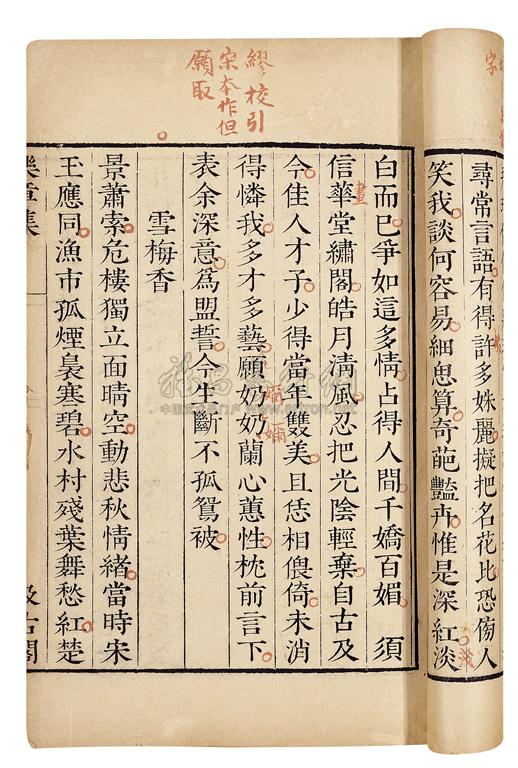 尋常言語有得許多姝麗擬把名花比恐傍人
笑我談何容易細思算奇葩豔卉惟是深紅淡
白而已爭如這多情占得人間千嬌百媚 須
信華堂繡閣皓月清風忍把光陰輕棄自古及
畫
今佳人才子少得當年雙美且恁相偎倚未消
得憐我多才多藝願奶奶蘭心蕙性枕前言下
嬭嬭
表余深意爲盟誓今生斷不孤鴛被
繆校引
宋本作但
願取
雪梅香
景蕭索危樓獨立面晴空動悲秋情緒當時宋
王應同漁市孤煙裊寒碧水村殘葉舞愁紅楚
樂章集
汲古閣